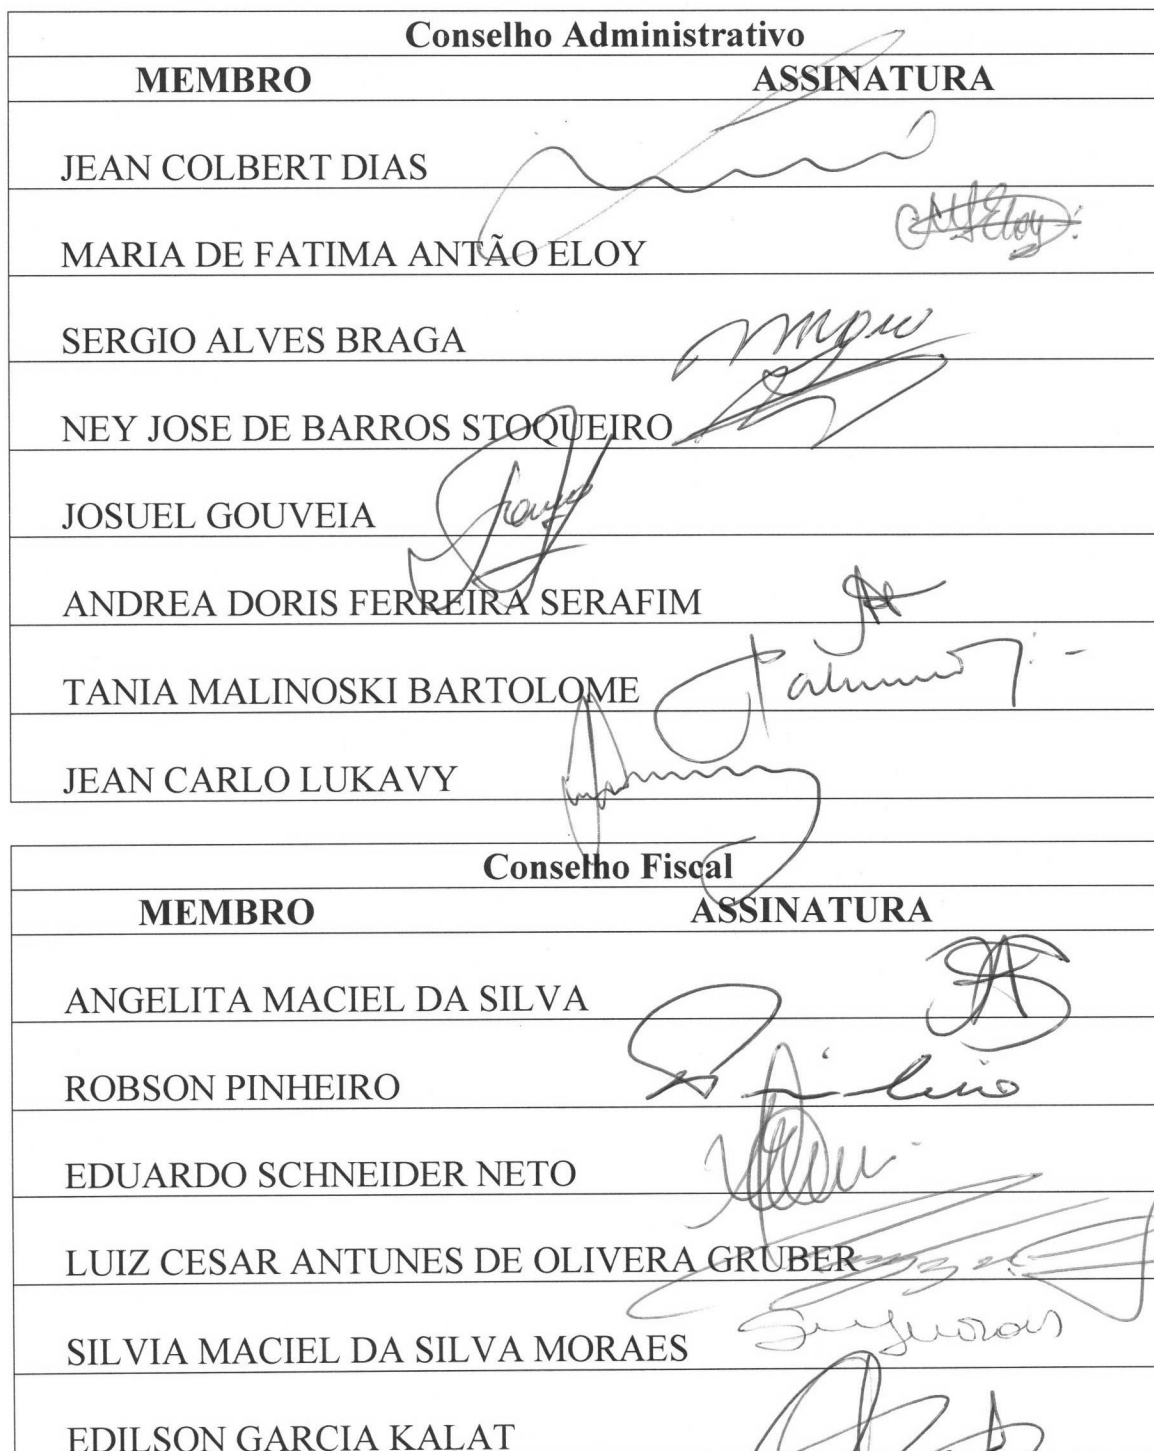 Conselho Administrativo
MEMBRO ASSINATURA
JEAN COLBERT DIAS
MARIA DE FATIMA ANTÃO ELOY
SERGIO ALVES BRAGA
NEY JOSE DE BARROS STOQUEIRO
JOSUEL GOUVEIA
ANDREA DORIS FERREIRA SERAFIM
TANIA MALINOSKI BARTOLOME
JEAN CARLO LUKAVY
Conselho Fiscal
MEMBRO ASSINATURA
ANGELITA MACIEL DA SILVA
ROBSON PINHEIRO
EDUARDO SCHNEIDER NETO
LUIZ CESAR ANTUNES DE OLIVERA GRUBER
SILVIA MACIEL DA SILVA MORAES
EDILSON GARCIA KALAT